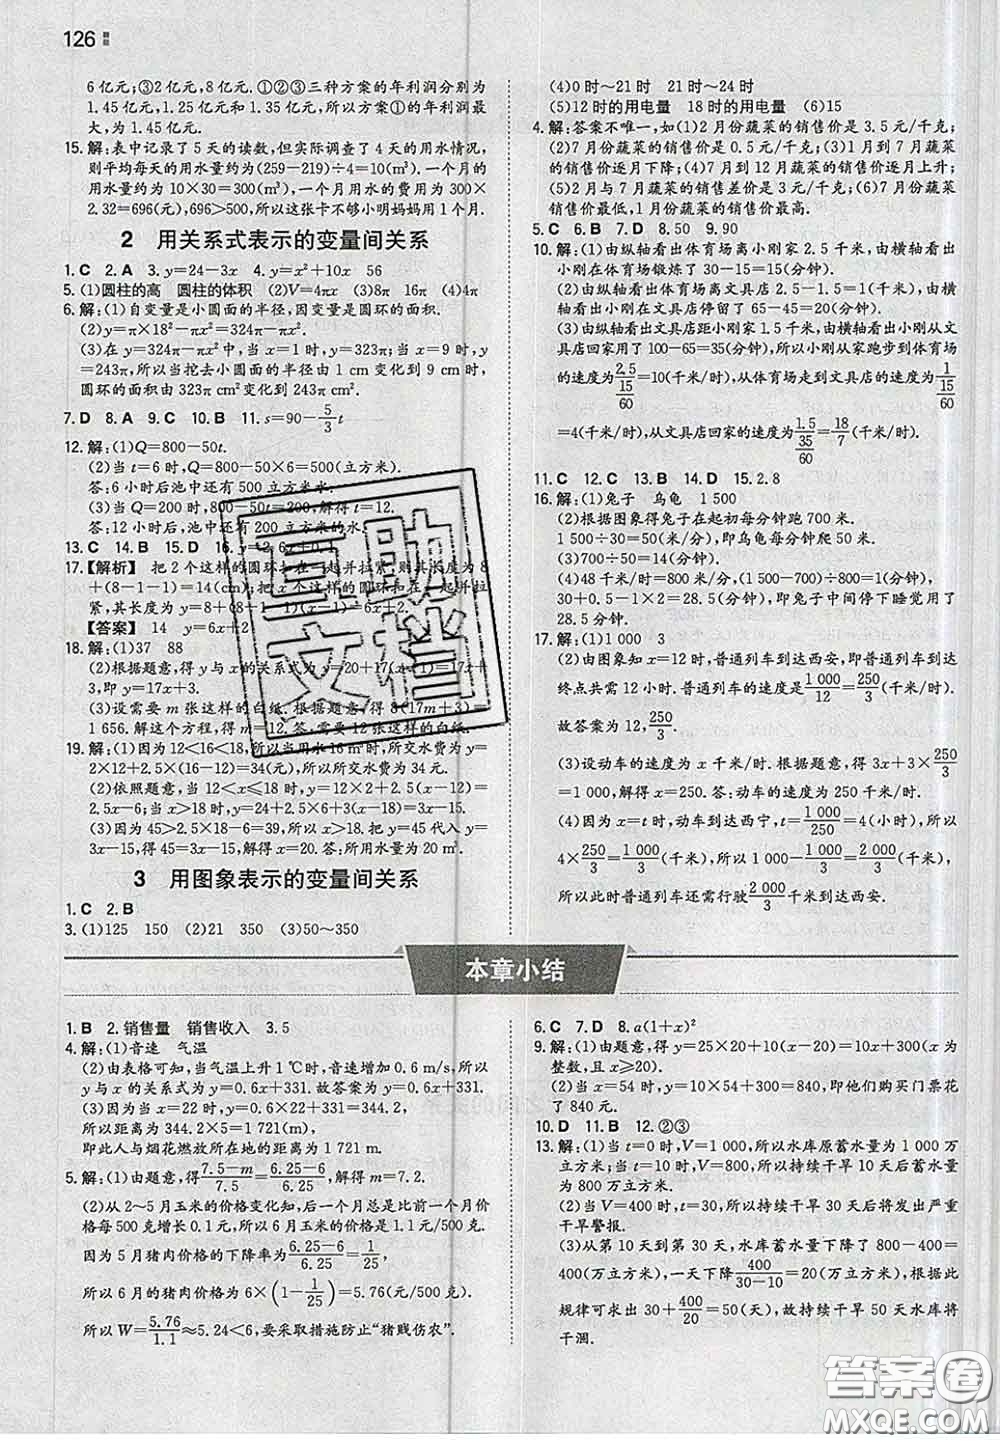 126
6亿元;③2亿元,8亿元.①②③三种方案的年利润分别为
1.45亿元,1.25亿元和1.35亿元,所以方案①的年利润最
大,为1.45亿元.
15.解:表中记录了5天的读数,但实际调查了4天的用水情况,
则平均每天的用水量约为(259-219)÷4=10(m³),一个月的
用水量约为10×30=300(m³),一个月用水的费用为300×
2.32=696(元),696>500,所以这张卡不够小明妈妈用1个月.
2 用关系式表示的变量间关系
1.C 2.A 3.y=24-3x 4.y=x²+10x 56
5.(1)圆柱的高 圆柱的体积 (2)V=4πx (3)8π 16π (4)4π
6.解:(1)自变量是小圆面的半径,因变量是圆环的面积.
(2)y=π×18²-πx²=324π-πx².
(3)在y=324π-πx²中,当x=1时,y=323π;当x=9时,y
=243π,所以当挖去小圆的半径由1 cm变化到9 cm时,
圆环的面积由323π cm²变化到243π cm².
7.D 8.A 9.C 10.B 11.s=90-5/3t
12.解:(1)Q=800-50t.
(2)当t=6时,Q=800-50×6=500(立方米).
答:6小时后池中还有500立方米水.
(3)当Q=200时,800-50t=200,解得t=12.
答:12小时后,池中还有200立方米的水.
13.C 14.B 15.D 16.y=2.6x+0.1
17.【解析】 把2个这样的圆环扣在一起并拉紧,则其长度为8
+(8-1-1)=14(cm);把x个这样的圆环扣在一起并拉
紧,其长度为y=8+(8-1-1)(x-1)=6x+2.
【答案】 14 y=6x+2
18.解:(1)37 88
(2)根据题意,得y与x的关系式为y=20+17(x-1)=17x+
+3,即y=17x+3.
(3)设需要m张这样的白纸.根据题意,得8(17m+3)=
1 656.解这个方程,得m=12.答:需要12张这样的白纸.
19.解:(1)因为12<16<18,所以当用水16 m³时,所交水费为y=
2×12+2.5×(16-12)=34(元),所以所交水费为34元.
(2)依照题意,当12<x≤18时,y=12×2+2.5(x-12)=
2.5x-6;当x>18时,y=24+2.5×6+3(x-18)=3x-15.
(3)因为45>2.5×18-6=39,所以x>18.把y=45代入y=
3x-15,得45=3x-15,解得x=20.答:所用水量为20 m³.
3 用图象表示的变量间关系
1.C 2.B
3.(1)125 150 (2)21 350 (3)50~350
(4)0时~21时 21时~24时
(5)12时的用电量 18时的用电量 (6)15
4.解:答案不唯一,如(1)2月份蔬菜的销售价是3.5元/千克;
(2)7月份蔬菜的销售价是0.5元/千克;(3)1月到7月蔬菜
的销售价逐月下降;(4)7月到12月蔬菜的销售价逐月上升;
(5)2月与7月的销售差价是3元/千克;(6)7月份蔬菜的
销售价最低,1月份蔬菜的销售价最高.
5.C 6.B 7.D 8.50 9.90
10.解:(1)由纵轴看出体育场离小刚家2.5千米,由横轴看出
小刚在体育场锻炼了30-15=15(分钟).
(2)由纵轴看出体育场离文具店2.5-1.5=1(千米),由横
轴看出小刚在文具店停留了65-45=20(分钟).
(3)由纵轴看出文具店距小刚家1.5千米,由横轴看出从文
具店回家用了100-65=35(分钟),所以小刚从家跑步到体育场
的速度为2.5/(15/60)=10(千米/时),从体育场走到文具店的速度为1/(15/60)
=4(千米/时),从文具店回家的速度为1.5/(35/60)=18/7(千米/时).
11.C 12.C 13.B 14.D 15.2.8
16.解:(1)兔子 乌龟 1 500
(2)根据图象得兔子在起初每分钟跑700米.
1 500÷30=50(米/分钟),即乌龟每分钟爬50米.
(3)700÷50=14(分钟).
(4)48千米/时=800米/分钟,(1 500-700)÷800=1(分钟),
30+0.5-1×2=28.5(分钟),即兔子中间停下睡觉用了
28.5分钟.
17.解:(1)1 000 3
(2)由图象知x=12时,普通列车到达西安,即普通列车到达
终点共需12小时.普通列车的速度是1 000/12=250/3(千米/时).
故答案为12,250/3.
(3)设动车的速度为x千米/时.根据题意,得3x+3×250/3
=1 000,解得x=250.答:动车的速度为250千米/时.
(4)因为x=t时,动车到达西宁,t=1 000/250=4(小时),所以
4×250/3=1 000/3(千米),所以1 000-1 000/3=2 000/3(千米),
所以此时普通列车还需行驶2 000/3千米到达西安.
本章小结
1.B 2.销售量 销售收入 3.5
4.解:(1)音速 气温
(2)由表格可知,当气温上升1 ℃时,音速增加0.6 m/s,所以
y与x的关系式为y=0.6x+331.故答案为y=0.6x+331.
(3)当x=22时,y=0.6×22+331=344.2,
距离为344.2×5=1 721(m),
即此人与烟花燃放所在地的距离为1 721 m.
5.解:(1)由题意,得(7.5-m)/7.5=(6.25-6)/6.25,解得m=7.2.
(2)从2~5月玉米的价格变化知,后一个月总是比前一个月价
格每500克增长0.1元,所以6月玉米的价格是1.1元/500克.
因为5月猪肉价格的下降率为(6.25-6)/6.25=1/25,
所以6月的猪肉价格为6×(1-1/25)=5.76(元/500克).
所以W=5.76/1.1≈5.24<6,要采取措施防止“猪贱伤农”.
6.C 7.D 8.a(1+x)²
9.解:(1)由题意,得y=25×20+10(x-20)=10x+300(x为
整数,且x≥20).
(2)当x=54时,y=10x+300=840.答:他们购买门票花
了840元.
10.D 11.B 12.②③
13.解:(1)当t=0时,V=1 000,所以水库原蓄水量为1 000万
立方米,当t=10时,V=800,所以持续干旱10天后蓄水量
为800万立方米.
(2)当V=400时,t=30,所以持续干旱30天后将发出严重
干旱警报.
(3)从第10天到第30天,水库蓄水量下降了800-400=
400(万立方米),一天下降400/(30-10)=20(万立方米),因此
规律可求出30+400/20=50(天),故持续干旱50天水库将
干涸.
互助
文档
答案圈
MXQE.COM